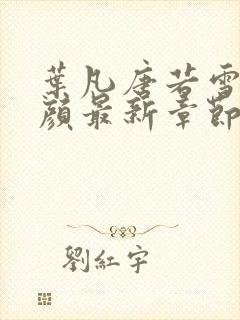 葉凡唐若雪
顏最新章節
劉紅宇